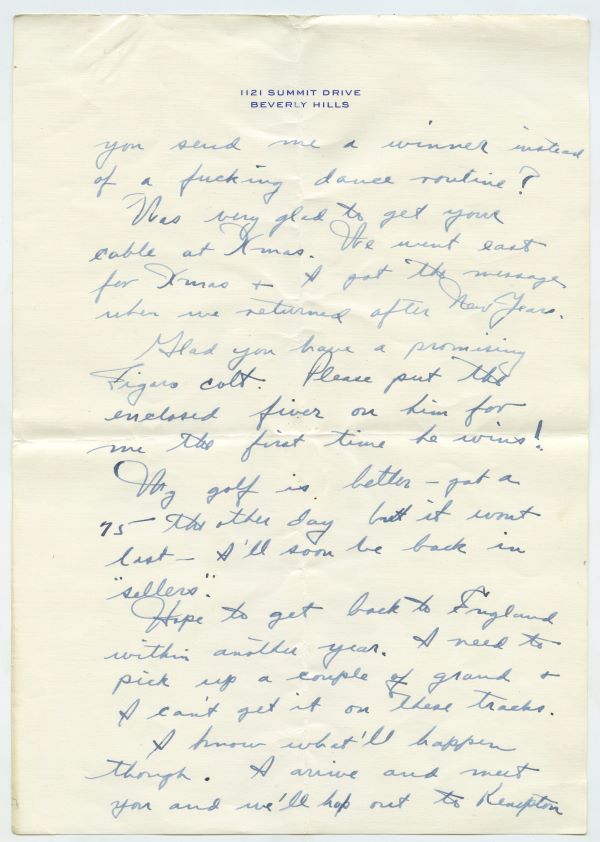 1121 SUMMIT DRIVE
BEVERLY HILLS
you send me a winner instead
of a fucking dance routine?
Was very glad to get your
cable at Xmas. We went east
for Xmas + I got the message
when we returned after New Years.
Glad you have a promising
Figaro colt. Please put the
enclosed fiver on him for
me the first time he wins!
My golf is better - got a
75 the other day but it wont
last - I'll soon be back in
"sellers".
Hope to get back to England
within another year. I need to
pick up a couple of grand +
I can't get it on these tracks.
I know what'll happen
though. I arive and meet
you and we'll hop out to Kempton